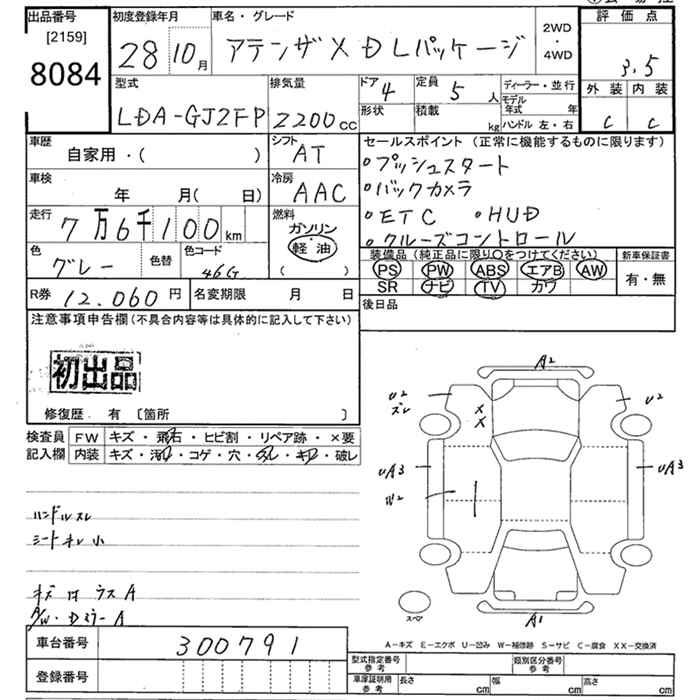 出品番号
[2159]
8084
初度登録年月
28 10月
車名・グレード
アテンザ XD Lパッケージ
2WD
・
4WD
評価点
3.5
外装 内装
C C
型式
LDA-GJ2FP
排気量
2200cc
ドア 4
形状
定員 5人
積載 kg
ディーラー・並行
モデル年式 年
ハンドル 左・右
車歴
自家用・( )
シフト
AT
車検
年 月( 日)
冷房
AAC
走行
7万6千100km
燃料
ガソリン
軽油
( )
色
グレー
色替
色コード
46G
R券 12.060円
名変期限 月 日
セールスポイント (正常に機能するものに限ります)
・プッシュスタート
・バックカメラ
・ETC ・HUD
・クルーズコントロール
装備品 (純正品に限り○をつけてください)
PS PW ABS エアB AW
SR ナビ TV カワ
新車保証書
有・無
後日品
注意事項申告欄 (不具合内容等は具体的に記入して下さい)
初出品
修復歴・有 [箇所 ]
検査員記入欄
FW キズ・飛石・ヒビ割・リペア跡・×要
内装 キズ・汚れ・コゲ・穴・スレ・キレ・破レ
ハンドルスレ
シートキレ小
キズ ウスA
A/W・Dミラー A
車台番号 300791
登録番号
A2
U2
ズレ
X
X
U2
UA3
UA3
W2
A1
スペア
A-キズ E-エクボ U-凹み W-補修跡 S-サビ C-腐食 XX-交換済
型式指定番号 参考
類別区分番号 参考
車庫証明用 参考
長さ cm 幅 cm 高さ cm